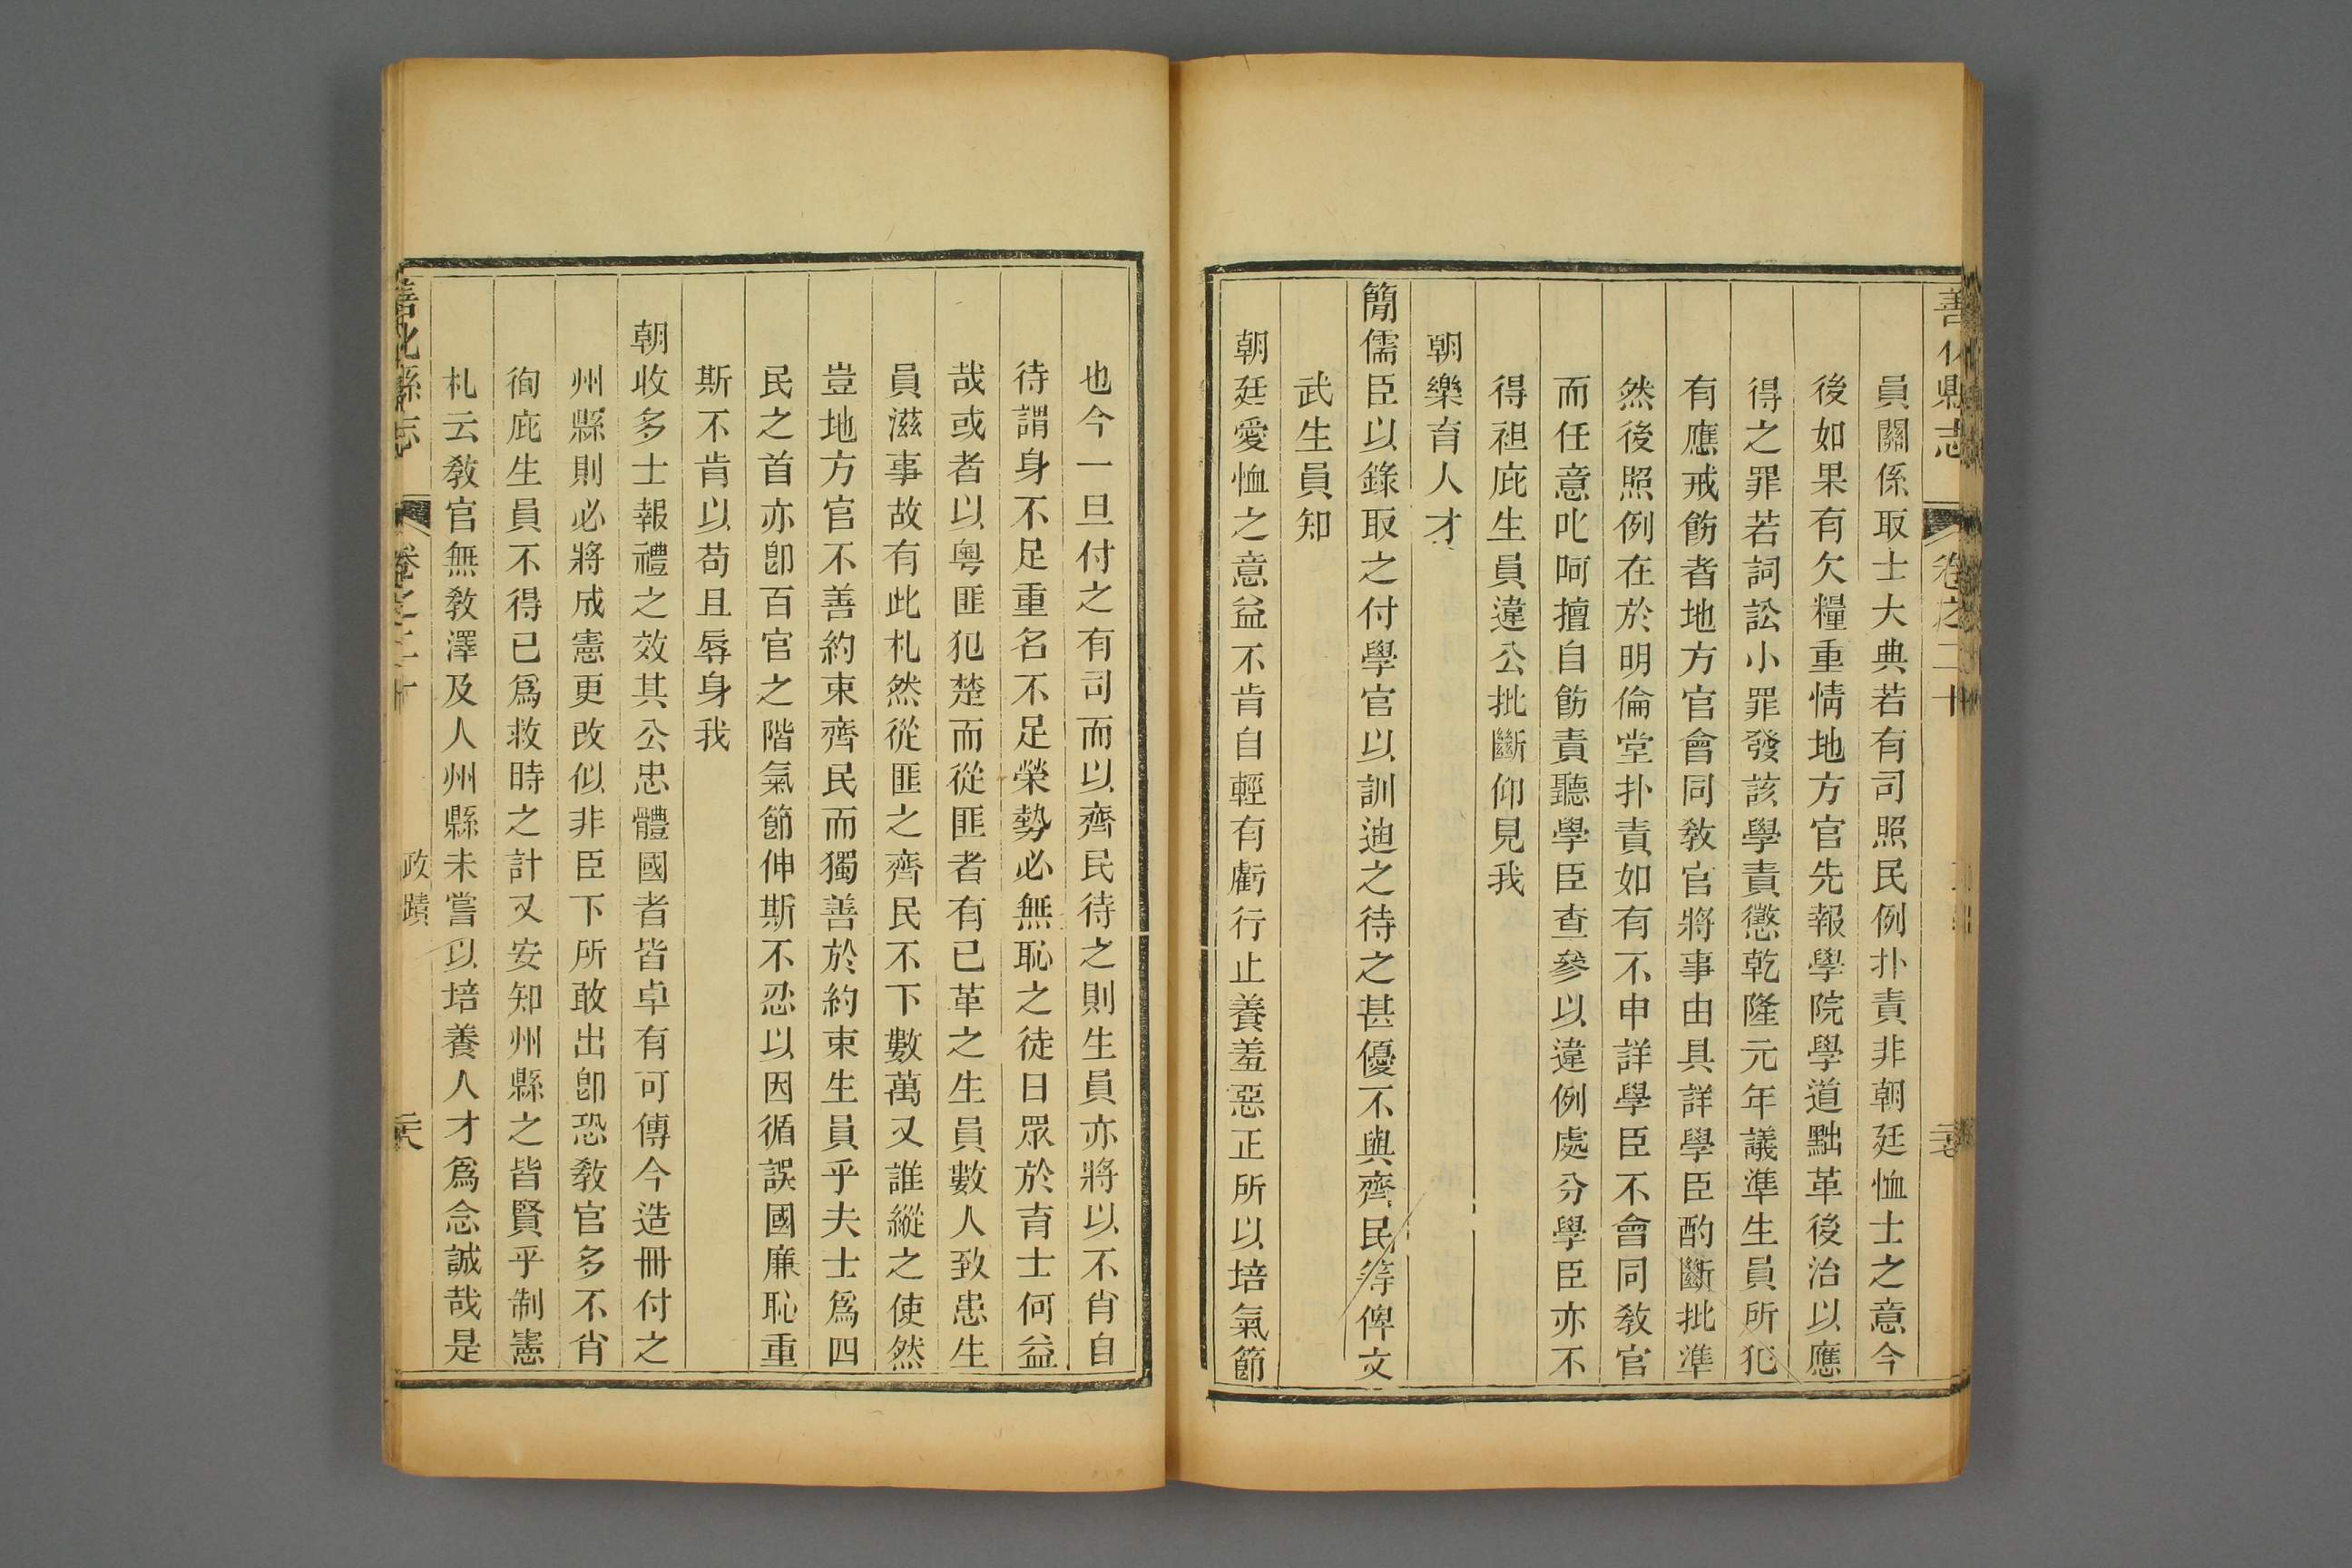 善化縣志 卷之二十
員關係取士大典若有司照民例扑責非朝廷恤士之意今
後如果有欠糧重情地方官先報學院學道黜革後治以應
得之罪若詞訟小罪發該學責懲乾隆元年議準生員所犯
有應戒飭者地方官會同敎官將事由具詳學臣酌斷批準
然後照例在於明倫堂扑責如有不申詳學臣不會同敎官
而任意叱呵擅自飭責聽學臣查參以違例處分學臣亦不
得袒庇生員違公批斷仰見我
朝樂育人才
簡儒臣以錄取之付學官以訓迪之待之甚優不與齊民等俾文
武生員知
朝廷愛恤之意益不肯自輕有虧行止養羞惡正所以培氣節
也今一旦付之有司而以齊民待之則生員亦將以不肖自
待謂身不足重名不足榮勢必無恥之徒日眾於育士何益
哉或者以粤匪犯楚而從匪者有已革之生員數人致患生
員滋事故有此札然從匪之齊民不下數萬又誰縱之使然
豈地方官不善約束齊民而獨善於約束生員乎夫士爲四
民之首亦卽百官之階氣節伸斯不忍以因循誤國廉恥重
斯不肯以苟且辱身我
朝收多士報禮之效其公忠體國者皆卓有可傳今造冊付之
州縣則必將成憲更改似非臣下所敢出卽恐敎官多不肖
徇庇生員不得已爲救時之計又安知州縣之皆賢乎制憲
札云敎官無敎澤及人州縣未嘗以培養人才爲念誠哉是
善化縣志 卷之二十 政蹟 二十八